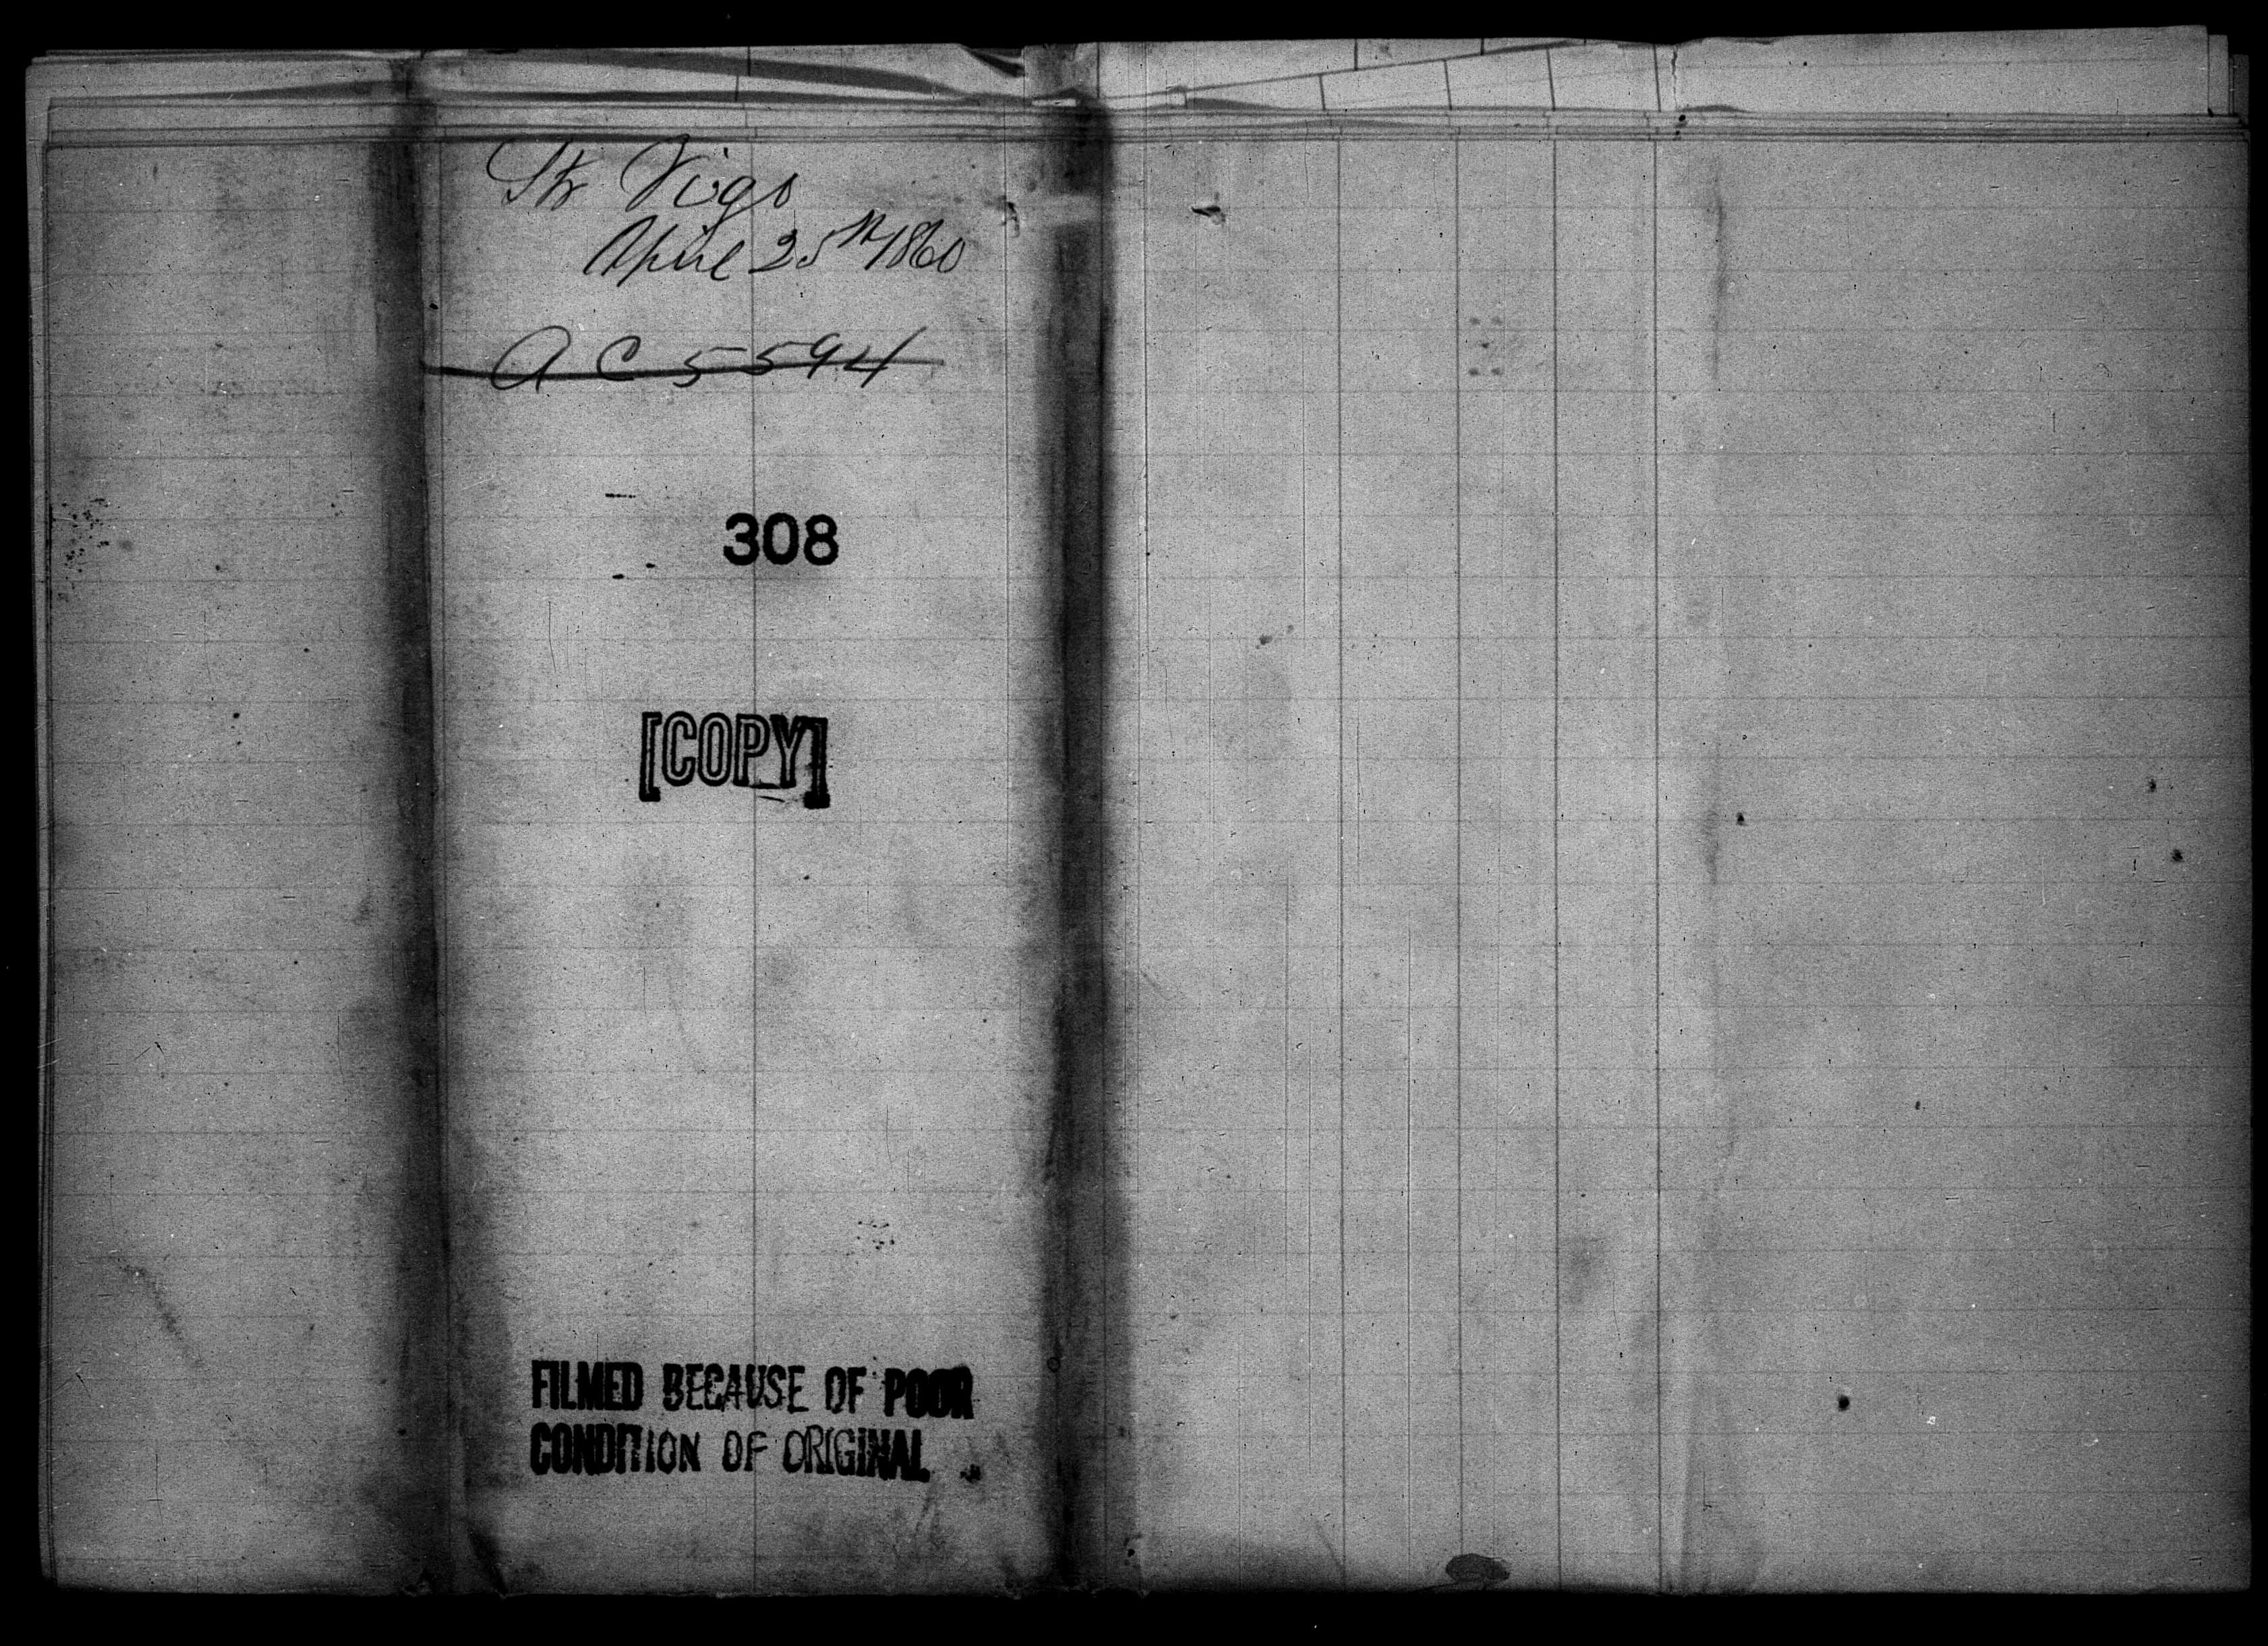 Str Vigo
April 25th 1860
A C 5594
308
[COPY]
FILMED BECAUSE OF POOR
CONDITION OF ORIGINAL